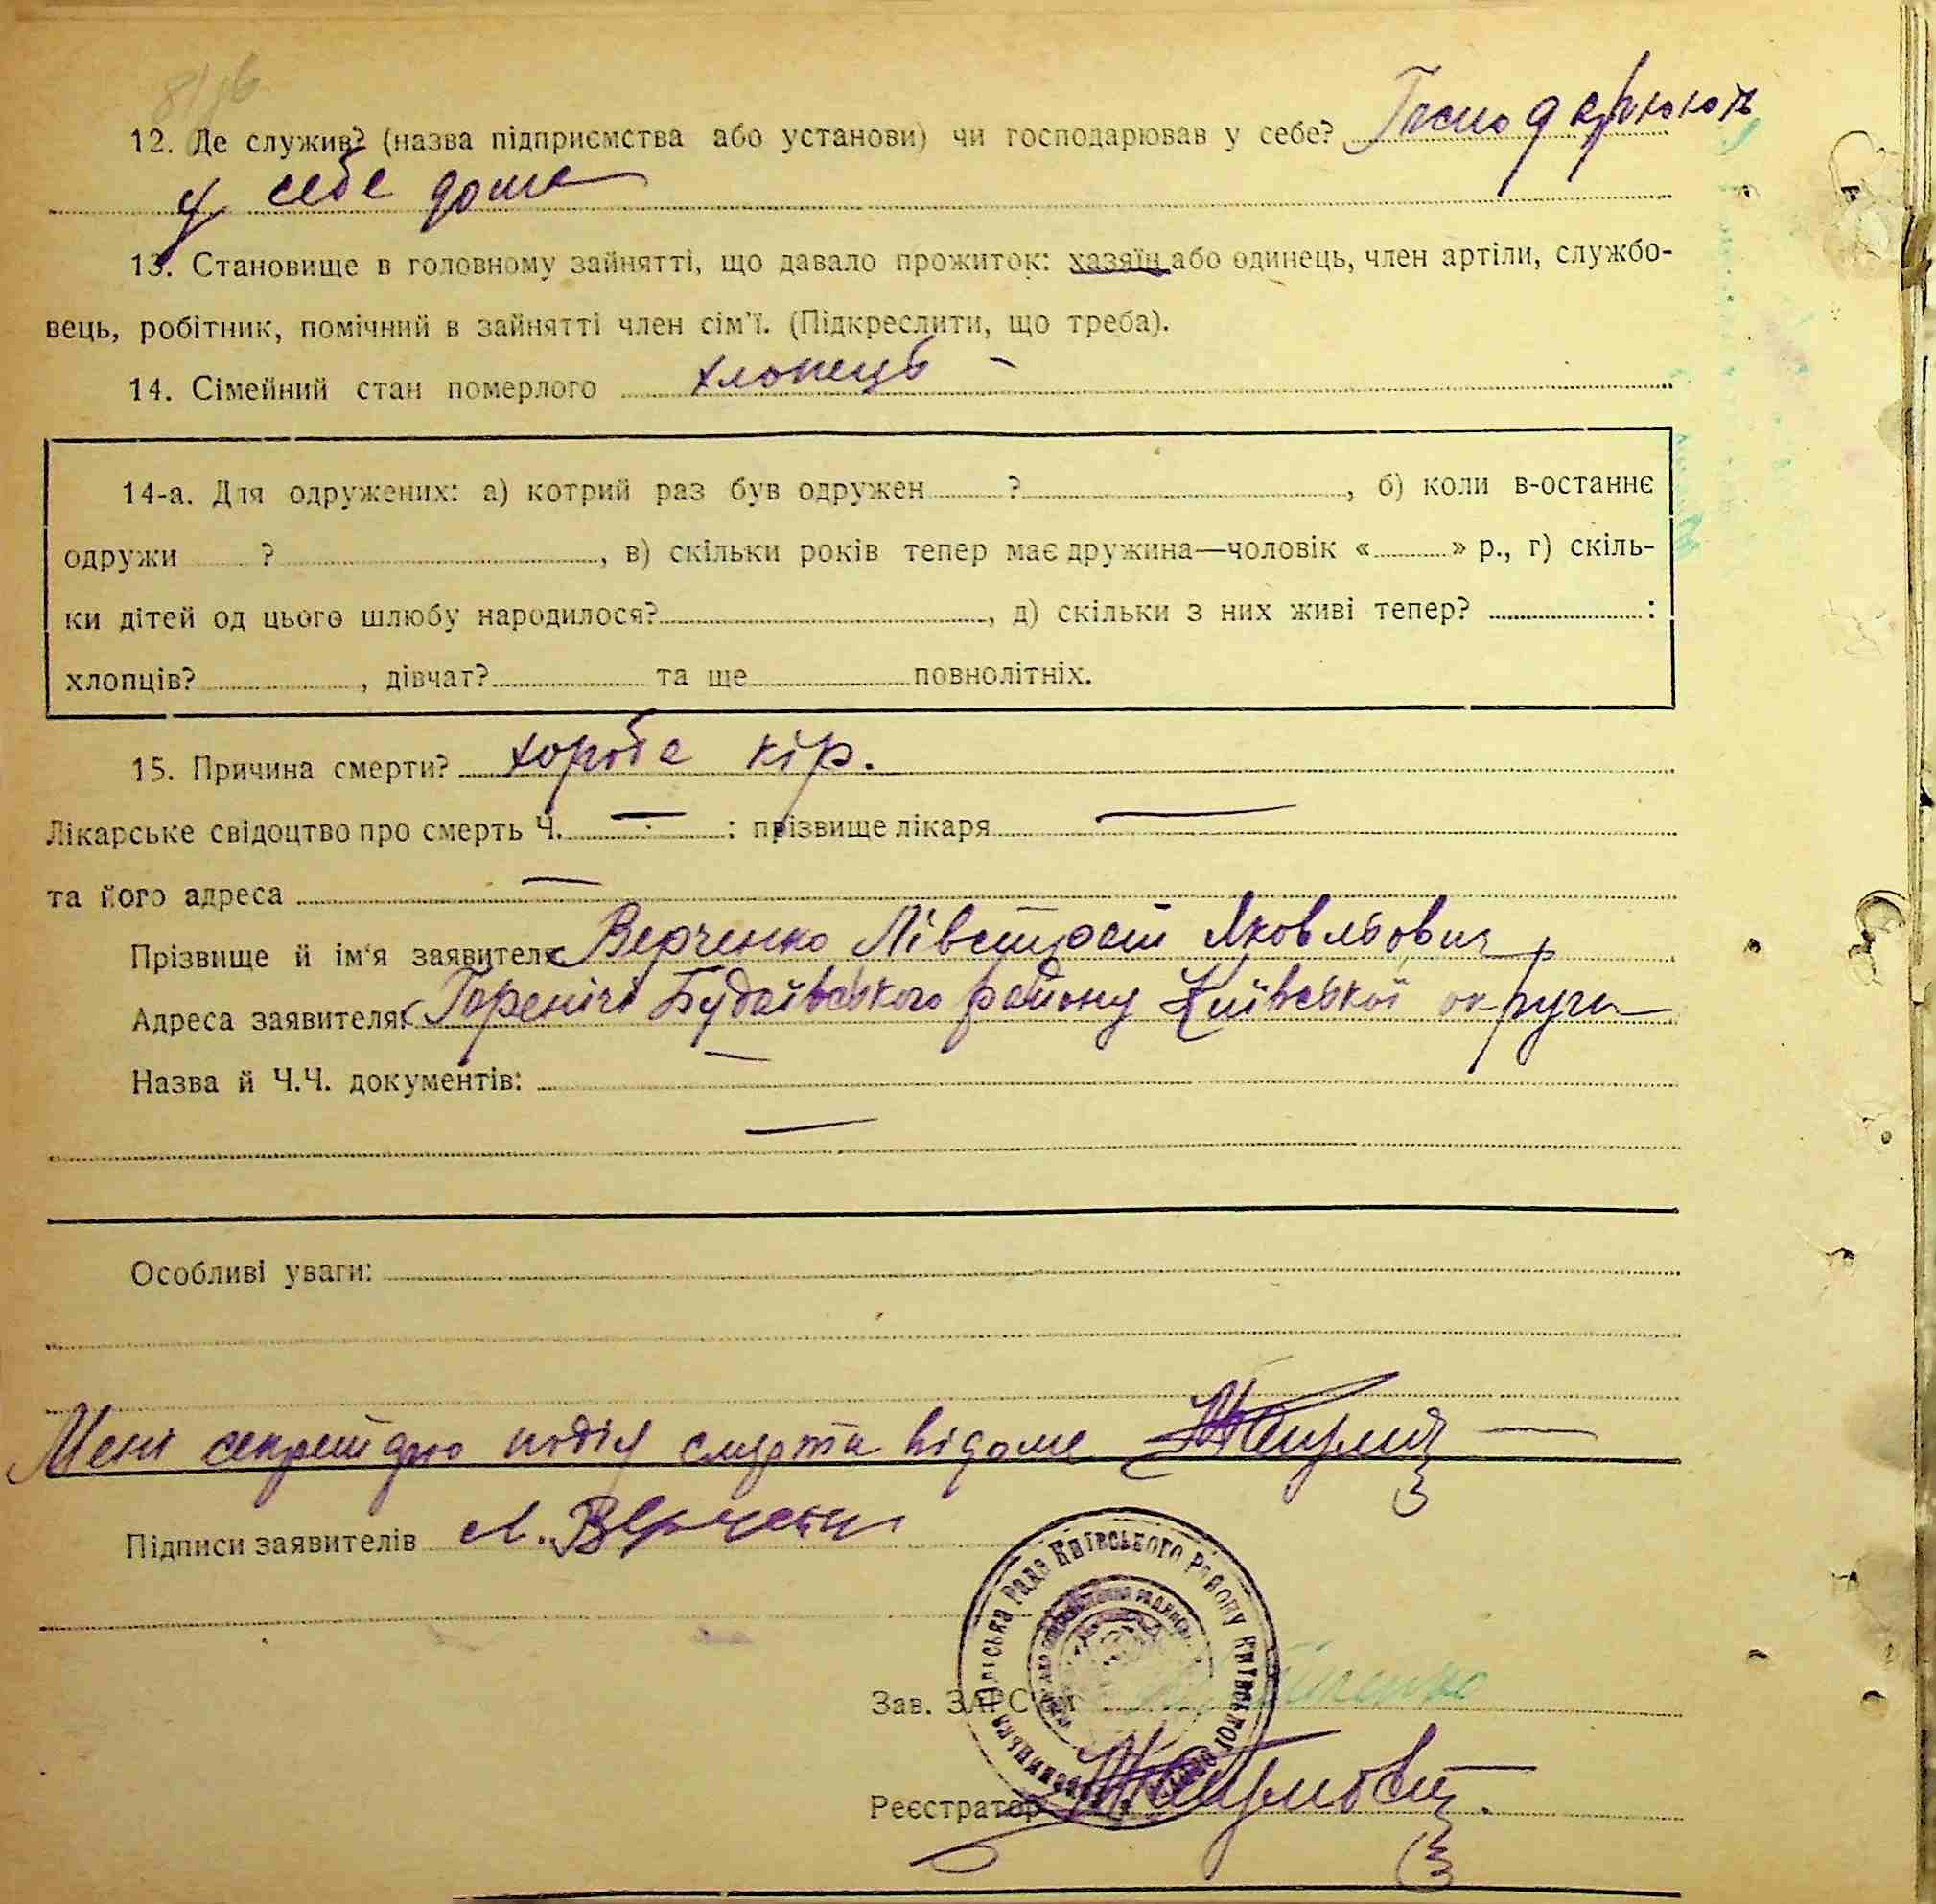 12. Де служив? (назва підприємства або установи) чи господарював у себе? Господарюють
у себе дома
13. Становище в головному зайнятті, що давало прожиток: хазяїн або одинець, член артіли, службо-
вець, робітник, помічний в зайнятті член сім'ї. (Підкреслити, що треба).
14. Сімейний стан померлого хлопець -
14-а. Для одружених: а) котрий раз був одружен ? , б) коли в-останнє
одружи ? , в) скільки років тепер має дружина—чоловік « » р., г) скіль-
ки дітей од цього шлюбу народилося? , д) скільки з них живі тепер? :
хлопців? , дівчат? та ще повнолітніх.
15. Причина смерти? хороба кір.
Лікарське свідоцтво про смерть Ч. — : прізвище лікаря —
та його адреса —
Прізвище й ім'я заявителя Верченко Лівстрат Яковльович
Адреса заявителя: Гореничі Будаївського району Київської округи
Назва й Ч.Ч. документів: —
—
Особливі уваги:
Мені секретарю подія смерти відома
Підписи заявителів Л. Верченко
Рада Київського Району Київської
Зав. ЗАГС'ом
Реєстратор